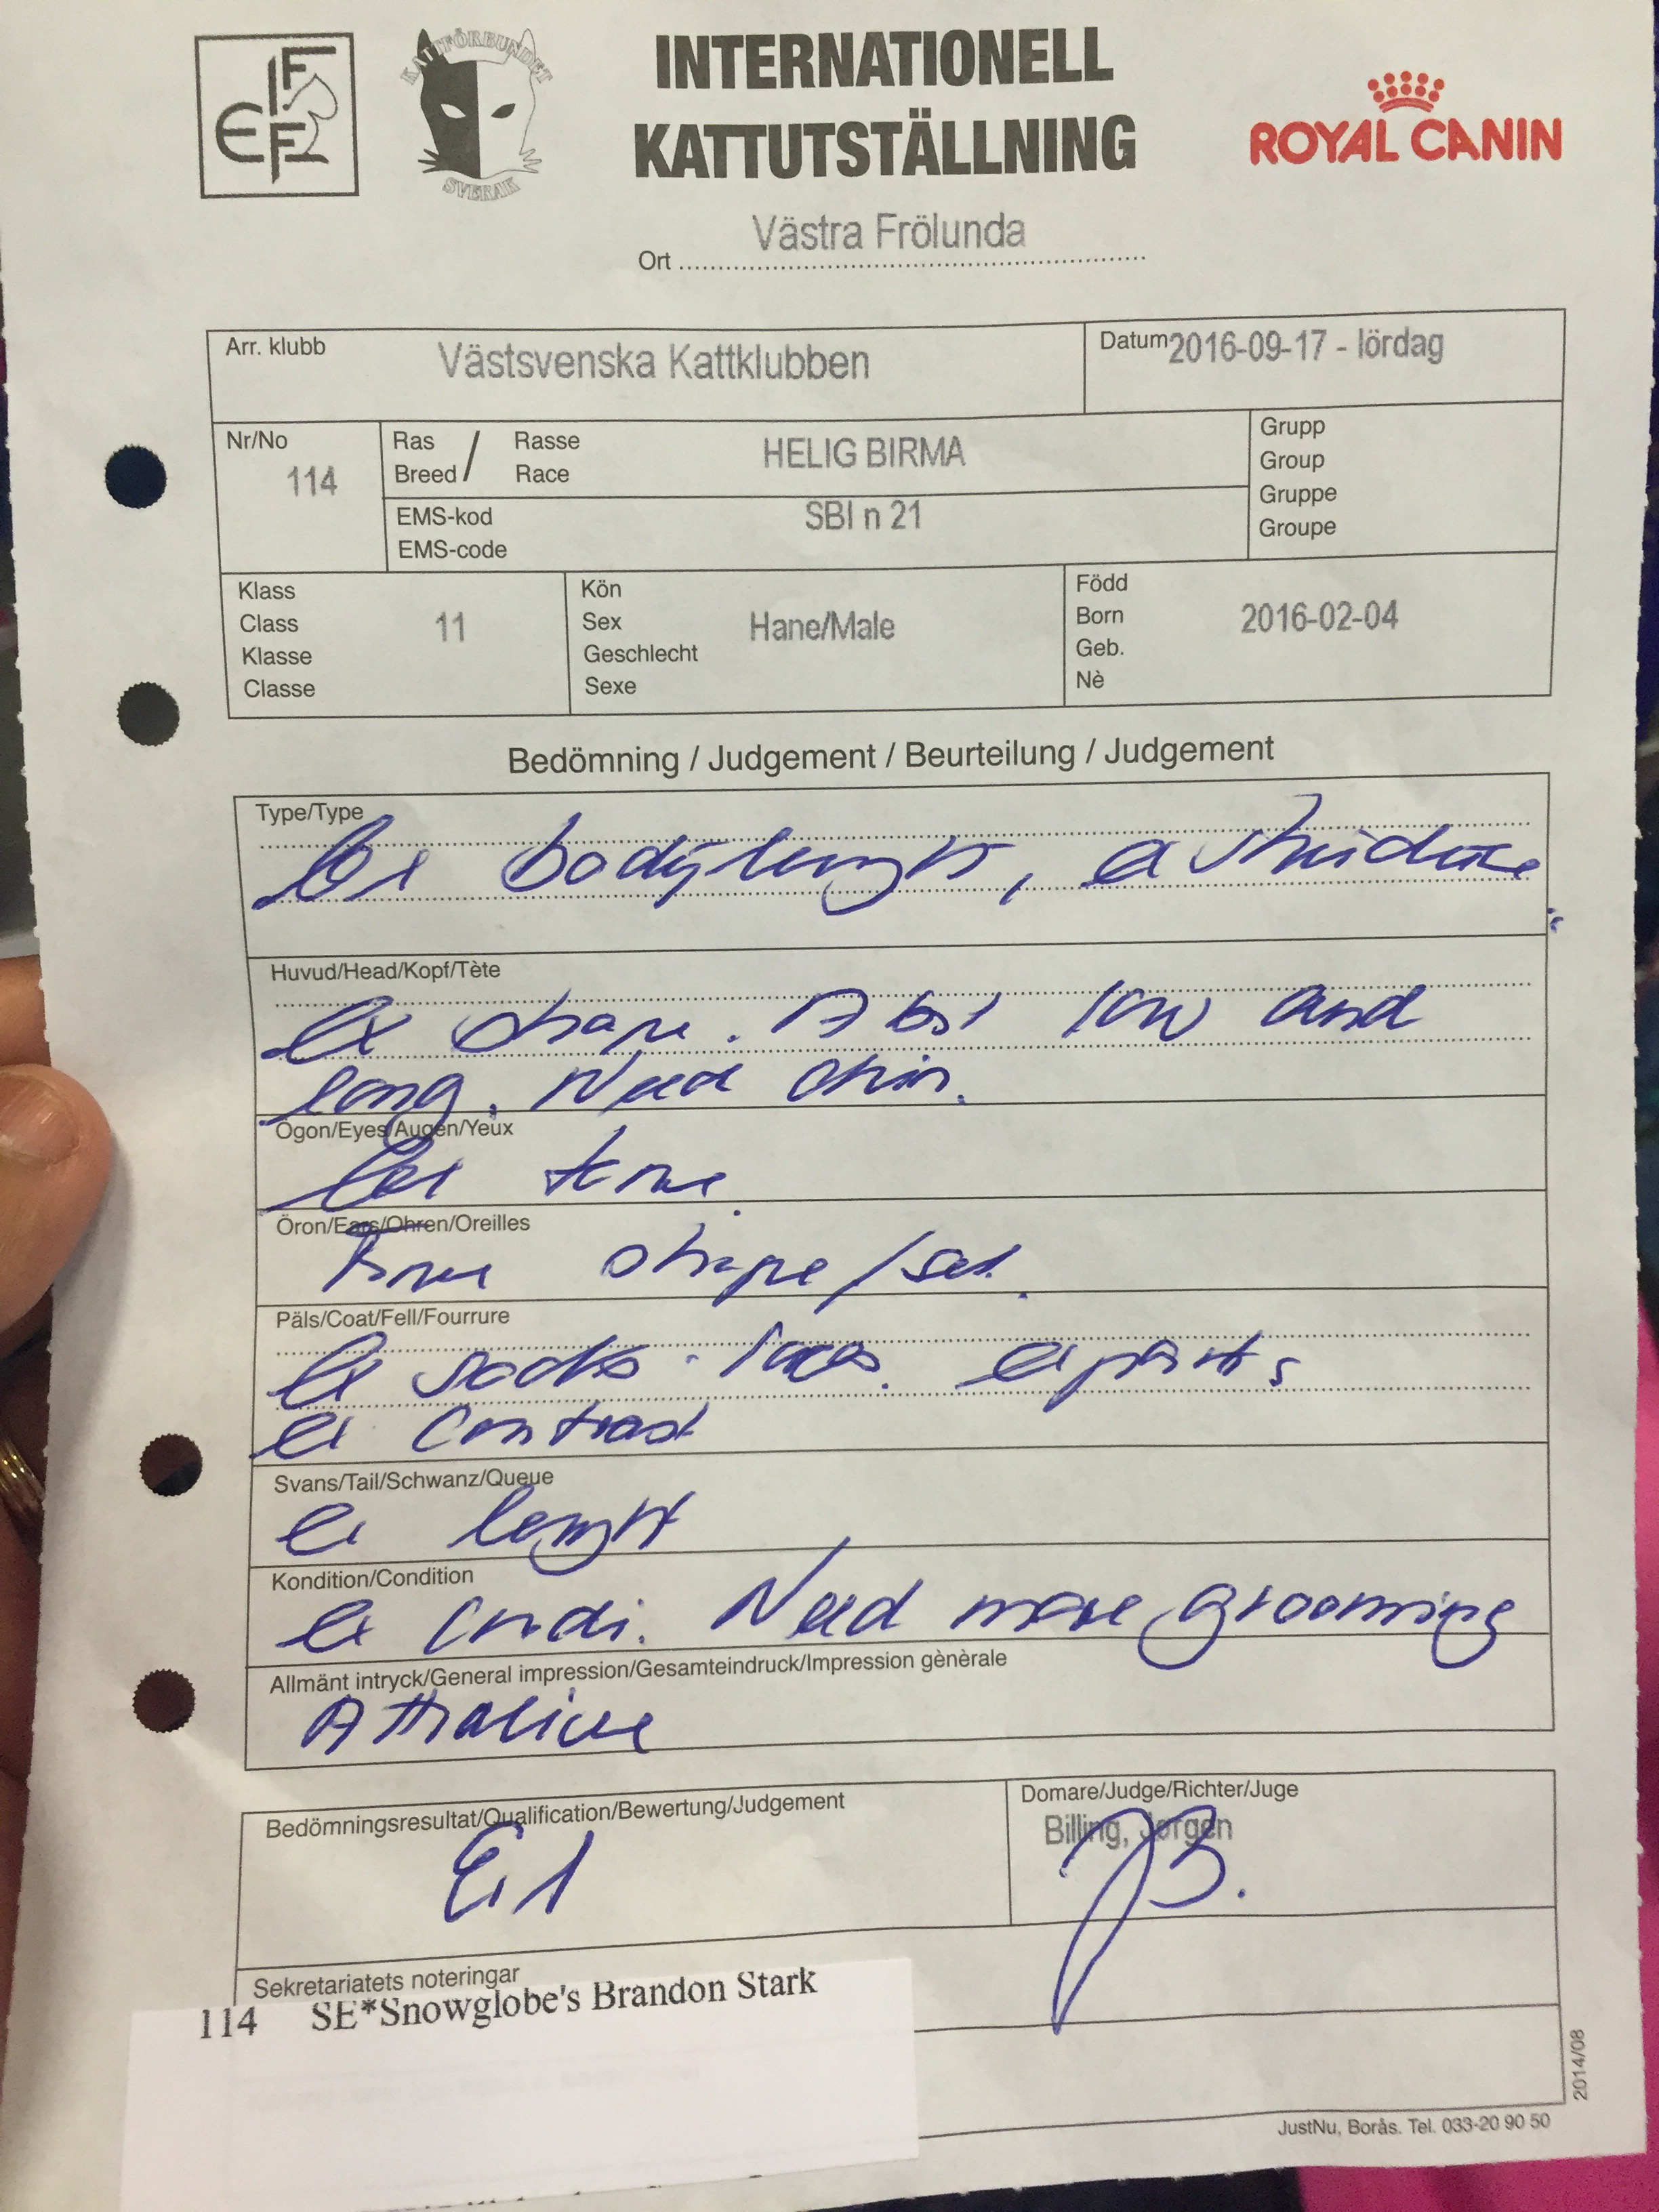 FIFE
KATTFÖRBUNDET
SVERAK
INTERNATIONELL
KATTUTSTÄLLNING
ROYAL CANIN
Ort Västra Frölunda
Arr. klubb Västsvenska Kattklubben
Datum 2016-09-17 - lördag
Nr/No
114
Ras / Rasse
Breed / Race
HELIG BIRMA
EMS-kod
EMS-code
SBI n 21
Grupp
Group
Gruppe
Groupe
Klass
Class
Klasse
Classe
11
Kön
Sex
Geschlecht
Sexe
Hane/Male
Född
Born
Geb.
Nè
2016-02-04
Bedömning / Judgement / Beurteilung / Judgement
Type/Type
Ex bodylenght, ex
Huvud/Head/Kopf/Tète
Ex shape. A bit low and
long. Need chin.
Ögon/Eyes/Augen/Yeux
Ex tone.
Öron/Ears/Ohren/Oreilles
Fine shape/set.
Päls/Coat/Fell/Fourrure
Ex socks. ex points
ex contrast
Svans/Tail/Schwanz/Queue
ex lenght
Kondition/Condition
ex condi. Need more grooming
Allmänt intryck/General impression/Gesamteindruck/Impression gènèrale
Attractive
Bedömningsresultat/Qualification/Bewertung/Judgement
Ex 1
Domare/Judge/Richter/Juge
Billing, Jörgen
JB.
Sekretariatets noteringar
114 SE*Snowglobe's Brandon Stark
2014/08
JustNu, Borås. Tel. 033-20 90 50